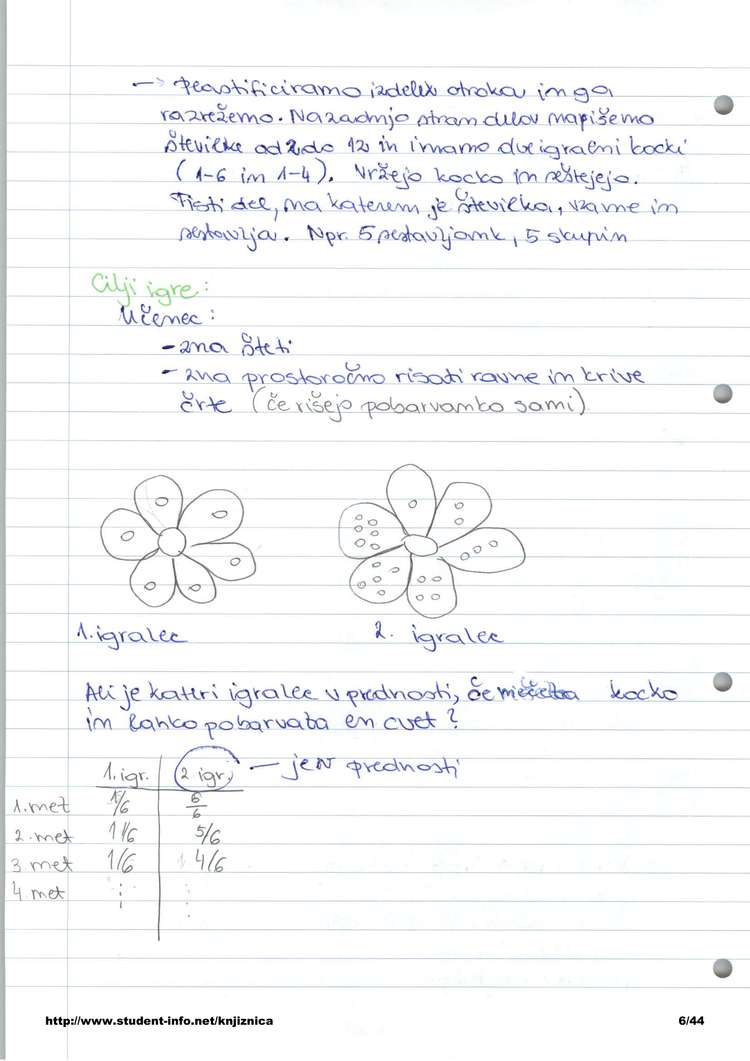 → Plastificiramo izdelek otroka in ga
razrežemo. Na zadnjo stran delov napišemo
številke od 2 do 12 in imamo dve igralni kocki
(1-6 in 1-4). Vržejo kocko in seštejejo.
Tisti del, na katerem je številka, vzame in
sestavlja. Npr. 5 sestavljank, 5 skupin
Cilji igre:
Učenec:
- zna šteti
- zna prostoročno risati ravne in krive
črte (če rišejo pobarvanko sami)
1. igralec
2. igralec
Ali je kateri igralec v prednosti, če mečeta kocko
in lahko pobarvata en cvet?
1. igr. 2 igr. - je v prednosti
1. met 1/6 6/6
2. met 1/6 5/6
3 met 1/6 4/6
4 met
http://www.student-info.net/knjiznica 6/44